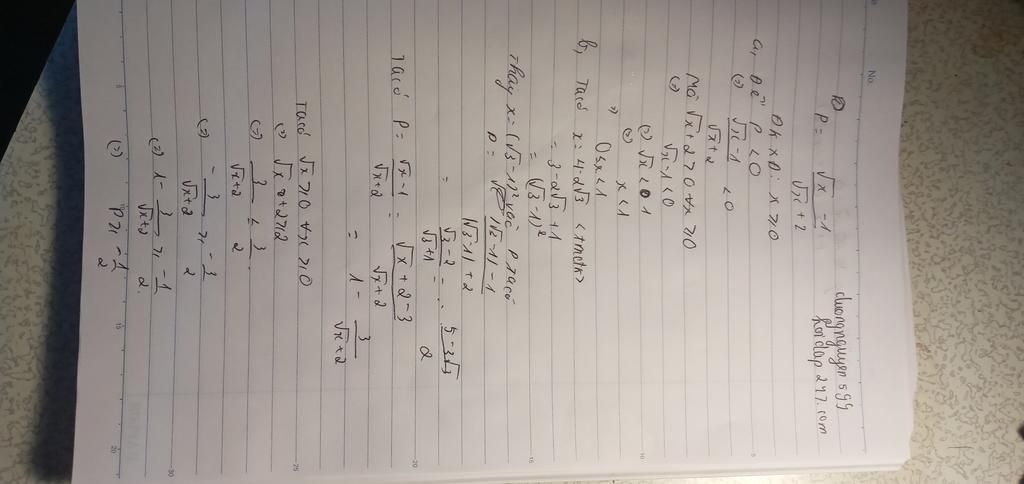 No.
duongnguyen599
hoidap247.com
② P = √x - 1 / √x + 2
Đk xđ: x ≥ 0
a, Để P < 0
(=) √x - 1 / √x + 2 < 0
Mà √x + 2 > 0 ∀x ≥ 0
(=) √x - 1 < 0
(=) √x < 1
(=) x < 1
=) 0 ≤ x < 1
b, Ta có x = 4 - 2√3 <tmđk>
= 3 - 2√3 + 1
= (√3 - 1)²
Thay x = (√3 - 1)² vào P ta có
P = |√3 - 1| - 1 / |√3 - 1| + 2
= √3 - 2 / √3 + 1 = ... 5 - 3√3 / 2
Ta có P = √x - 1 / √x + 2 = √x + 2 - 3 / √x + 2
= 1 - 3 / √x + 2
Ta có √x ≥ 0 ∀x ≥ 0
(=) √x + 2 ≥ 2
(=) 3 / √x + 2 ≤ 3 / 2
(=) - 3 / √x + 2 ≥ - 3 / 2
(=) 1 - 3 / √x + 2 ≥ - 1 / 2
(=) P ≥ - 1 / 2
5
10
15
20
25
30
5
10
15
20